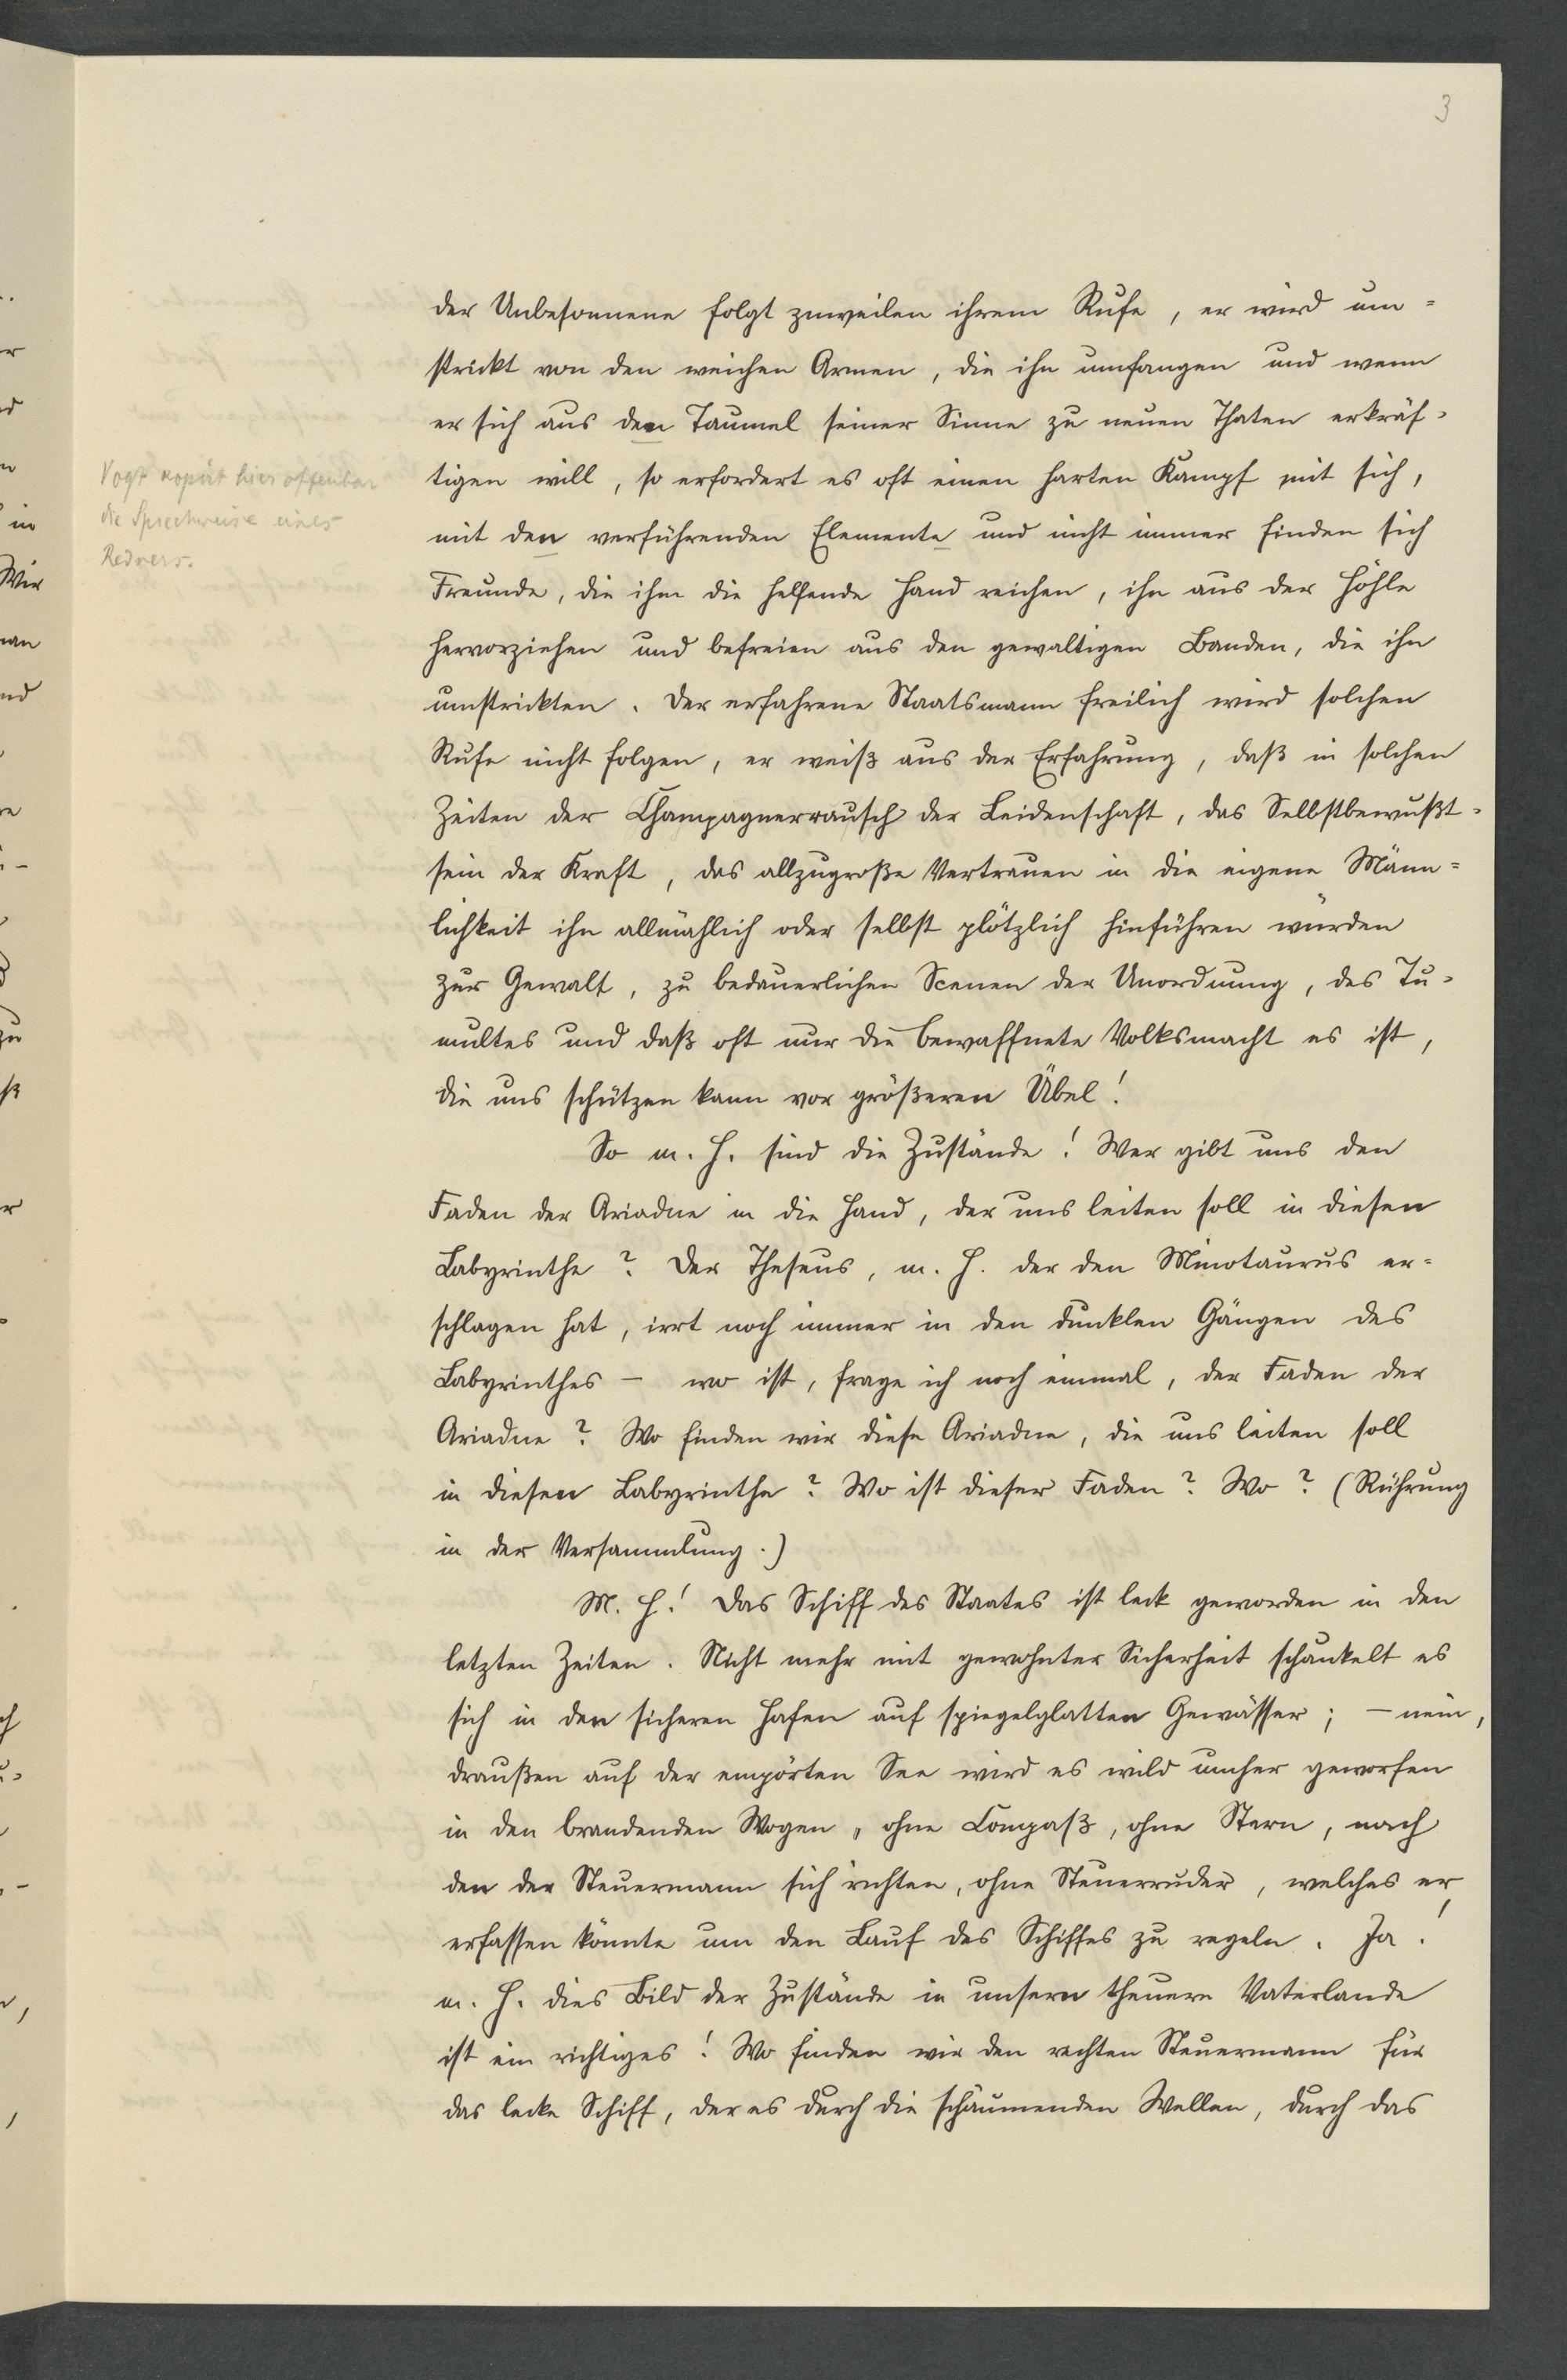 3
der Unbesonnene folgt zuweilen ihrem Rufe, er wird um=
strickt von den weichen Armen, die ihn umfangen und wenn
er sich aus den Taumel seiner Sinne zu neuen Thaten erkräf-
tigen will, so erfordert es oft einen harten Kampf mit sich,
mit den verführenden Elemente und nicht immer finden sich
Freunde, die ihm die helfende Hand reichen, ihn aus der Höhle
hervorziehen und befreien aus den gewaltigen Banden, die ihn
umstrickten. Der erfahrene Staatsmann freilich wird solchen
Rufe nicht folgen, er weiß aus der Erfahrung, daß in solchen
Zeiten der Champagnerrausch der Leidenschaft, das Selbstbewußt-
sein der Kraft, das allzugroße Vertrauen in die eigene Männ=
lichkeit ihn allmählich oder selbst plötzlich hinführen würden
zur Gewalt, zu bedauerlichen Scenen der Unordnung, des Tu-
multes und daß oft nur die bewaffnete Volksmacht es ist,
die uns schützen kann vor größeren Übel!
So m. H. sind die Zustände! Wer gibt uns den
Faden der Ariadne in die Hand, der uns leiten soll in diesen
Labyrinthe? Der Theseus, m. H. der den Minotaurus er=
schlagen hat, irrt noch immer in den dunklen Gängen des
Labyrinthes – wo ist, frage ich noch einmal, der Faden der
Ariadne? Wo finden wir diese Ariadne, die uns leiten soll
in diesen Labyrinthe? Wo ist dieser Faden? Wo? (Rührung
in der Versammlung.)
M. H.! Das Schiff des Staates ist leck geworden in den
letzten Zeiten. Nicht mehr mit gewohnter Sicherheit schaukelt es
sich in den sicheren Hafen auf spiegelglatten Gewässer; – nein,
draußen auf der empörten See wird es wild umher geworfen
in den brandenden Wogen, ohne Compaß, ohne Stern, nach
den der Steuermann sich richten, ohne Steuerruder, welches er
erfassen könnte um den Lauf des Schiffes zu regeln. Ja!
m. H. dies Bild der Zustände in unsern theuern Vaterlande
ist ein richtiges! Wo finden wir den rechten Steuermann für
das lecke Schiff, der es durch die schäumenden Wellen, durch das
Vogt kopiert hier offenbar
die Sprechweise eines
Redners.